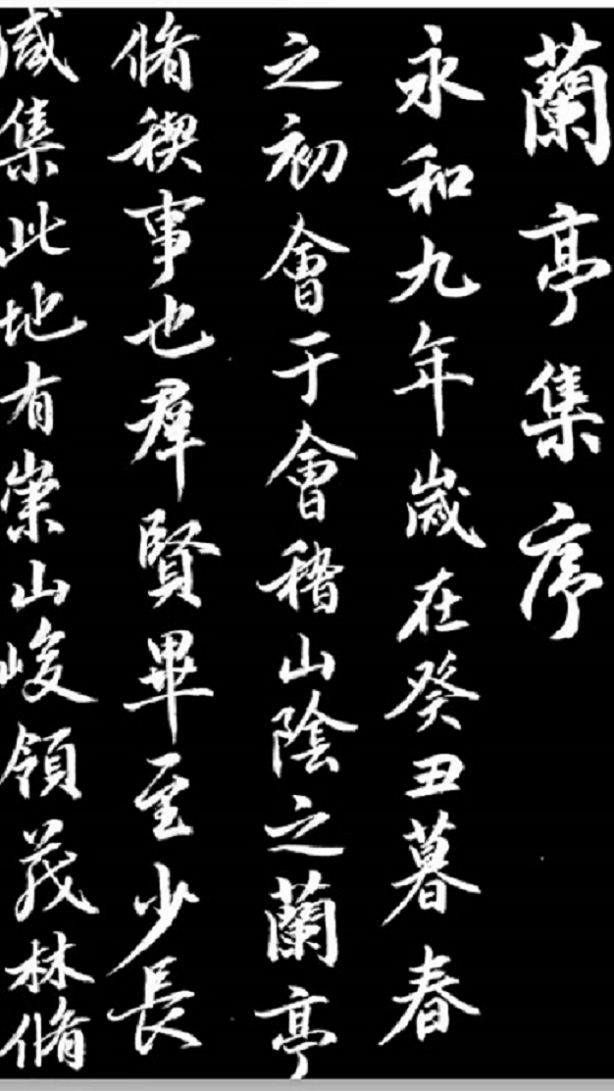 蘭亭集序
永和九年歲在癸丑暮春
之初會于會稽山陰之蘭亭
脩稧事也羣賢畢至少長
咸集此地有崇山峻領茂林脩